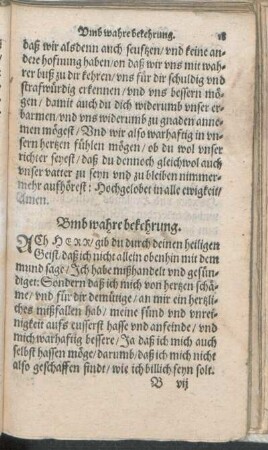 Vmb wahre bekehrung. 18
daß wir alsdenn auch seufftzen/vnd keine an-
dere hofnung haben/on daß wir vns mit wah-
rer buß zu dir kehren/vns für dir schuldig vnd
strafwürdig erkennen/vnd vns bessern mö-
gen/damit auch du dich widerumb vnser er-
barmen/vnd vns widerumb zu gnaden anne-
men mögest/Vnd wir also warhaftig in vn-
sern hertzen fühlen mögen/ob du wol vnser
richter seyest/daß du dennoch gleichwol auch
vnser vatter zu seyn vnd zu bleiben nimmer-
mehr aufhörest: Hochgelobet in alle ewigkeit/
Amen.
Vmb wahre bekehrung.
ACh HERR/gib du durch deinen heiligen
Geist daß ich nicht allein obenhin mit dem
mund sage/Ich habe mißhandelt vnd gesün-
diget: Sondern daß ich mich von hertzen schä-
me/vnd für dir demütige/an mir ein hertzli-
ches mißfallen hab/meine sünd vnd vnrei-
nigkeit aufs eusserst hasse vnd anfeinde/vnd
mich warhaftig bessere/Ja daß ich mich auch
selbst hassen möge/darumb/daß ich mich nicht
also geschaffen findt/wie ich billich seyn solt.
B vij